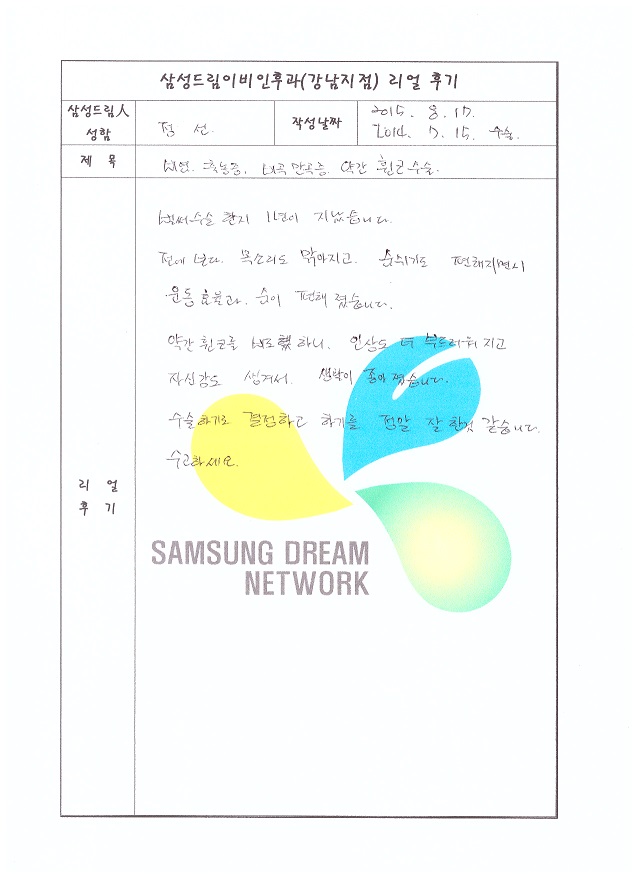 삼성드림이비인후과(강남지점) 리얼 후기
삼성드림人
성함
정 선.
작성날짜
2015. 8. 17.
2014. 7. 15. 수술.
제 목
비염. 축농증, 비곡 만곡증. 약간 휜코수술.
벌써수술 한지 1년이 지났습니다.
전에 보다. 목소리도 맑아지고. 숨쉬기도 편해지면서
운동 효율과. 숨이 편해 졌습니다.
약간 휜코를 하니. 인상도 더 부드러워 지고
자신감도 생겨서. 생활이 좋아 졌습니다.
수술하기로 결정하고 하기를 정말 잘 한것 같습니다.
수고하세요.
리 얼
후 기
SAMSUNG DREAM
NETWORK